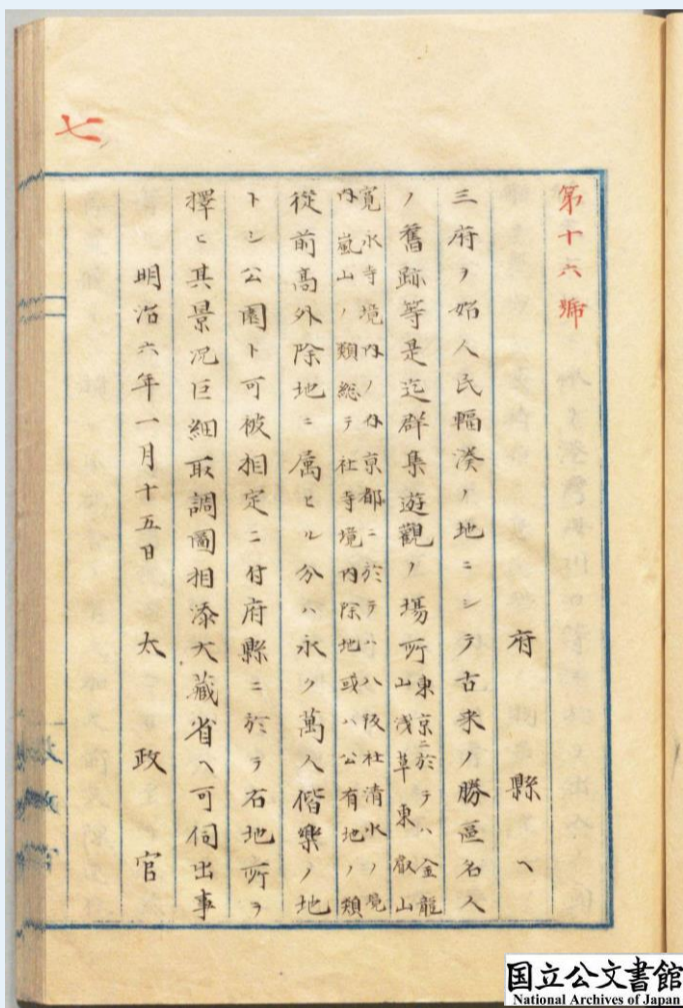 七
第十六號
府縣ヘ
三府ヲ始人民輻湊ノ地ニシテ古来ノ勝區名人
ノ舊跡等是迄群集遊觀ノ場所東京ニ於テハ金龍
山淺草東叡山
寛永寺境内ノ類京都ニ於テハ八阪社清水ノ境
内嵐山ノ類総テ社寺境内除地或ハ公有地ノ類
從前高外除地ニ属セル分ハ永ク萬人偕樂ノ地
トシ公園ト可被相定ニ付府縣ニ於テ右地所ヲ
擇ヒ其景況巨細取調圖相添大藏省ヘ可伺出事
明治六年一月十五日 太政官
国立公文書館
National Archives of Japan